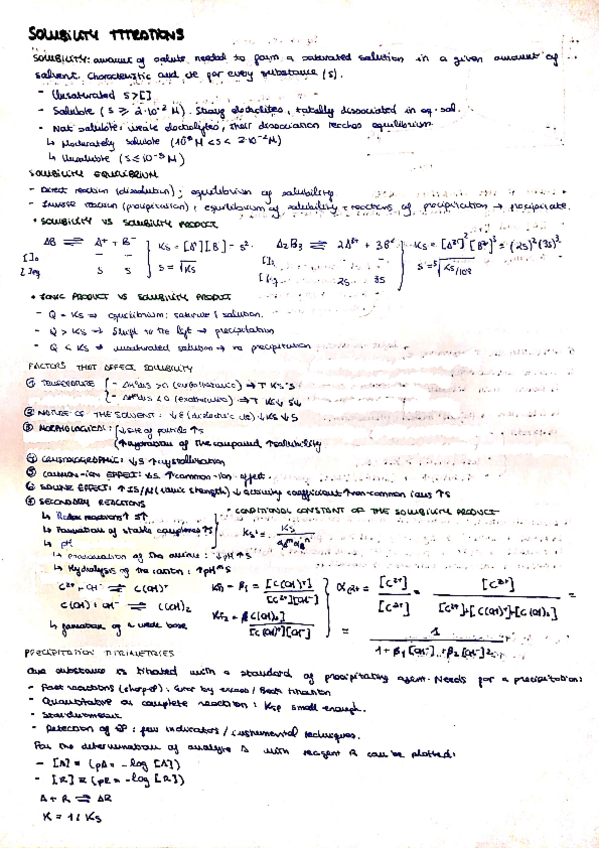 SOLUBILITY TITRATIONS
SOLUBILITY: amount of solute needed to form a saturated solution in a given amount of
solvent. Characteristic and for every substance (s).
- Unsaturated s>[]
- Soluble (s ≥ 2·10⁻² M). Strong electrolites, totally dissociated in aq. sol.
- Not soluble: weak electrolytes, their dissociation reaches equilibrium.
↳ Moderately soluble (10⁻⁵ M < s < 2·10⁻² M)
↳ Unsoluble (s ≤ 10⁻⁵ M)
SOLUBILITY EQUILIBRIUM
- Direct reaction (dissolution): equilibrium of solubility
- Inverse reaction (precipitation): equilibrium of solubility = reactions of precipitation → precipitate.
• SOLUBILITY VS SOLUBILITY PRODUCT
AB ⇌ A⁺ + B⁻ } Ks = [A⁺][B⁻] = s². A₂B₃ ⇌ 2A³⁺ + 3B²⁻ } Ks = [A³⁺]² [B²⁻]³ = (2s)²(3s)³
[ ]₀ - - s = √Ks [ ]₀ - - s = ⁵√Ks/108
[ ]eq s s 2s 3s
• IONIC PRODUCT VS SOLUBILITY PRODUCT
- Q = Ks ⇒ equilibrium: solution.
- Q > Ks ⇒ Shift to the left → precipitation
- Q < Ks ⇒ unsaturated solution → no precipitation
FACTORS THAT AFFECT SOLUBILITY
① TEMPERATURE { - ΔHdis >0 (endothermic) ⇒ T Ks↑ s
- ΔHdis <0 (exothermic) ⇒ T Ks↓ s↓
② NATURE OF THE SOLVENT: ↓ε (dielectric ct) ↓Ks ↓s
③ MORPHOLOGICAL: { ↓size of particle ↑s
↑hydration of the compound ↑solubility
④ CRYSTALOGRAPHIC: ↓s ↑crystallization
⑤ COMMON-ION EFFECT: ↓s. ↑common-ion effect.
⑥ SALINE EFFECT: ↑ (ionic strength) ↓activity coefficient ↑non-common ions ↑s
SECONDARY REACTIONS
↳ Redox reactions ↑ s↑ • CONDITIONAL CONSTANT OF THE SOLUBILITY PRODUCT
↳ Formation of stable complexes ↑s Ks' = Ks / αAᵐ αBⁿ
↳ pH
↳ protonation of the anion: ↓pH ↑s
↳ Hydrolysis of the cation: ↑pH ↑s
C²⁺ + OH⁻ ⇌ C(OH)⁺ = β₁ = [C(OH)⁺] / [C²⁺][OH⁻] } αC²⁺ = [C²⁺] / [C²⁺] = [C²⁺] / [C²⁺]+[C(OH)⁺]+[C(OH)₂] =
C(OH)⁺ OH⁻ ⇌ C(OH)₂ = [C(OH)₂] / [C(OH)⁺][OH⁻] = 1 / 1 + β₁[OH⁻] + β₂[OH⁻]²
↳ formation of a weak base
PRECIPITATION TITRIMETRIES
One substance is titrated with a standard of precipitating agent. Needs for a precipitation:
- Fast reactions (sharp ep). Error by excess / Back titration
- Quantitative or complete reaction: Ksp small enough.
- Stoichiometric
- Detection of EP: few indicators / instrumental techniques.
For the determination of analyte A with reagent R can be plotted:
- [A] = (pA = -log [A])
- [R] = (pR = -log [R])
A + R ⇌ AR
K = 1/Ks